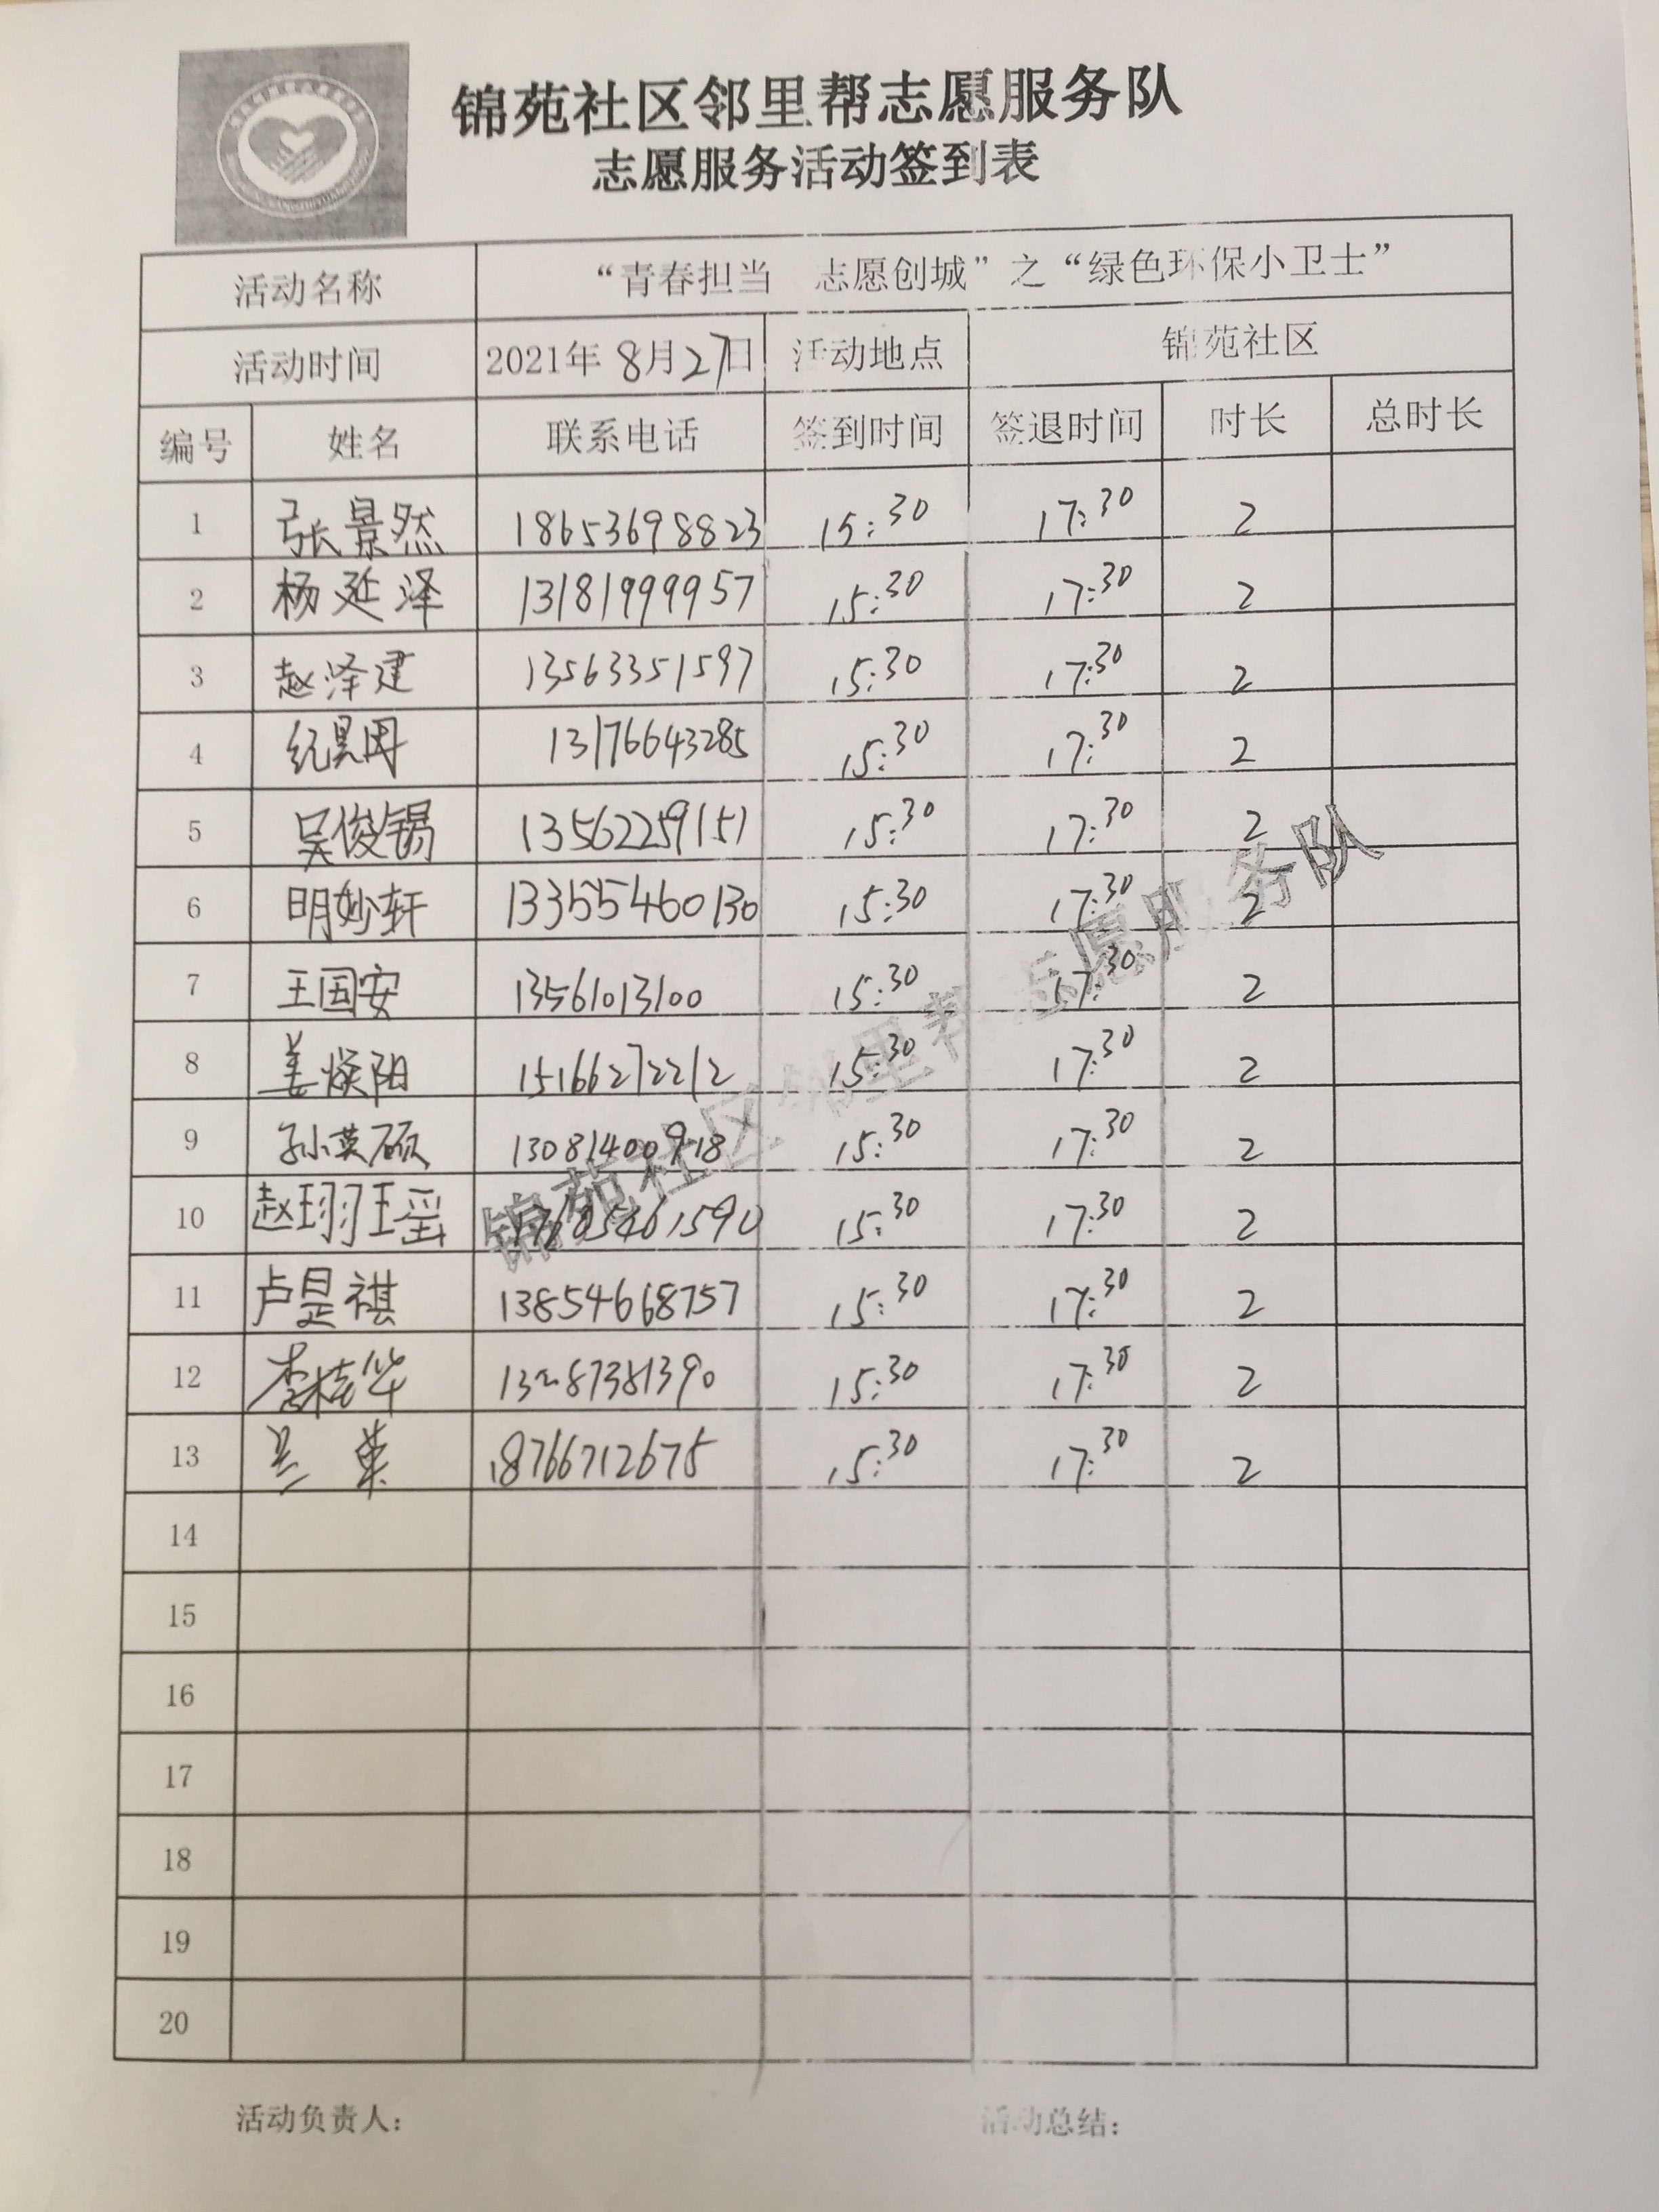 锦苑社区邻里帮志愿服务队
志愿服务活动签到表
活动名称 “青春担当 志愿创城”之“绿色环保小卫士”
活动时间 2021年8月27日 活动地点 锦苑社区
编号 姓名 联系电话 签到时间 签退时间 时长 总时长
1 张景然 18653698823 15:30 17:30 2
2 杨延泽 13181999957 15:30 17:30 2
3 赵泽建 13563351597 15:30 17:30 2
4 13176643285 15:30 17:30 2
5 吴俊锡 13562259151 15:30 17:30 2
6 明妙轩 13355460130 15:30 17:30 2
7 王国安 13561013100 15:30 17:30 2
8 姜焕阳 15166272212 15:30 17:30 2
9 孙英硕 13081400918 15:30 17:30 2
10 赵珝瑶 15:30 17:30 2
11 卢是祺 13854668757 15:30 17:30 2
12 李桂华 15:30 17:30 2
13 18766712675 15:30 17:30 2
14
15
16
17
18
19
20
锦苑社区邻里帮志愿服务队
活动负责人： 活动总结：